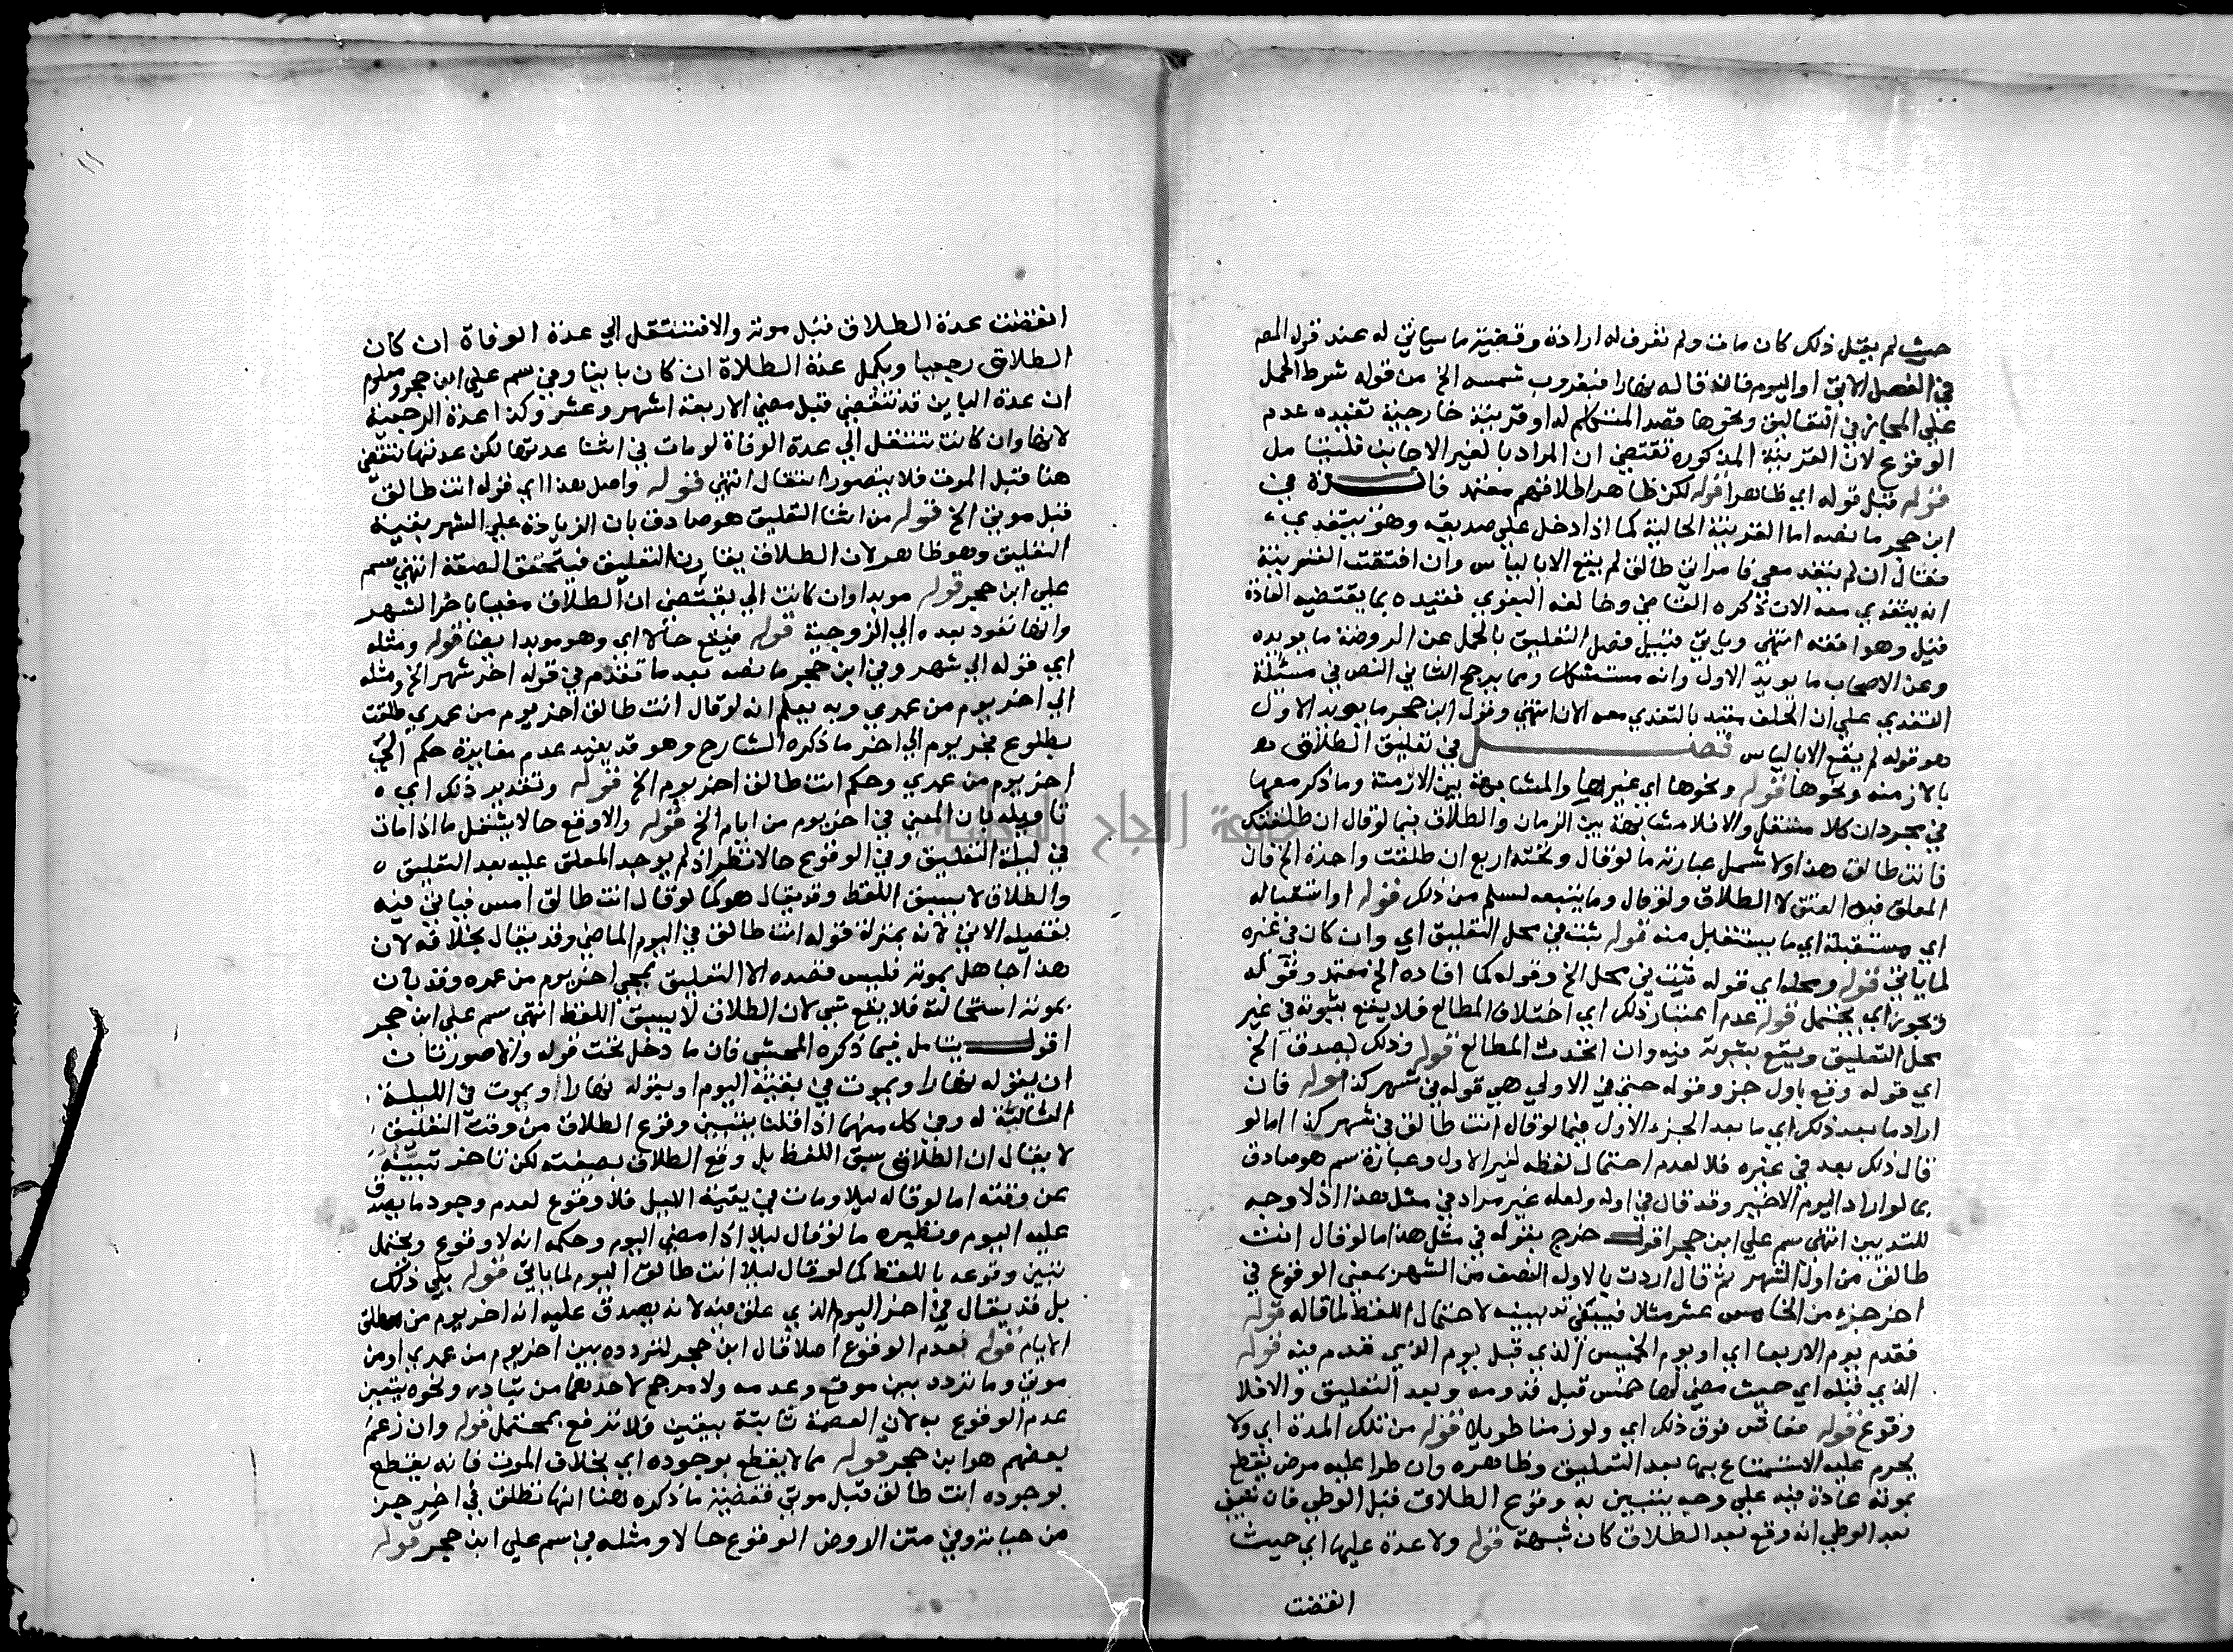 حيث لم يقبل ذلك كان مات ولم تعرف له ارادة وقضية ما سياتي له عند قول المصـ
في الفصل الاتي او اليوم فان قاله نهارا فبغروب شمسه الخ من قوله شرط الحمل
علي المجاز في التعاليق ونحوها قصد المتكلم له او قرينة خارجية تفيده عدم
الوقوع لان القرينة المذكوره تقتضي ان المراد بالغير الاجانب فليتامل
قوله قبل قوله اي ظاهرا قوله لكن ظاهر اطلاقهم معتمد فائدة في
ابن حجر ما نصه اما القرينة الحالية كما اذا دخل علي صديقه وهو يتغدي
فقال ان لم تتغد معي فامراتي طالق لم يقع الا بالياس وان اقتضت القرينة
انه يتغدي معه الان ذكره القاضي وخالفه البغوي فقيده بما يقتضيه العادة
قبل وهو افقه انتهى وياتي قبيل فصل التعليق بالحمل عن الروضة ما يويده
وعن الاصحاب ما يويد الاول وانه مستشكل ومما يرجح الثاني النص في مسئلة
التغدي علي ان الحلف مقيد بالتغدي معه الان انتهي وقول ابن حجر ما يويد الاول
هو قوله لم يقع الا بالياس فصل في تعليق الطلاق
بالازمنه ونحوها قوله ونحوها اي غيرها والمشابهة بين الازمنة وما ذكر معها
في مجرد ان كلا مشتغل والا فلا مشابهة بين الزمان والطلاق فيما لو قال ان طلقتك
فانت طالق هذا ولا تشمل عبارته ما لو قال وتحته اربع ان طلقت واحدة الخ فان
المعلق فيه العتق لا الطلاق ولو قال وما يتبعه لسلم من ذلك قوله او استقباله
اي مستقبلة اي ما يستقبل منه قوله ثبت في محل التعليق اي وان كان في غيره
لما ياتي قوله ومحله اي قوله ثبت في محل الخ وقوله كما افاده الخ معتمد وقوله
ونحوزاي يحتمل قوله عدم اعتبار ذلك اي اختلاف المطالع فلا يقع بثبوته في غير
محل التعليق ويقع بثبوته فيه وان اتحدت المطالع قوله وذلك لصدق الخ
اي قوله وقع باول جز وقوله حتي في الاولي هي قوله في شهر كذا قوله فان
اراد ما بعد ذلك اي ما بعد الجزء الاول فيما لو قال انت طالق في شهر كذا اما لو
قال ذلك بعد في غيره فلا لعدم احتمال لفظه لغير الاول وعبارة سم هو صادق
بما لو اراد اليوم الاخير وقد قال في اوله ولعله غير مراد في مثل هذا اذ لا وجه
للتديين انتهى سم علي ابن حجر اقول خرج بقوله في مثل هذا ما لو قال انت
طالق من اول الشهر ثم قال اردت بالاول النصف من الشهر بمعني الوقوع في
اخر جزء من الخامس عشر مثلا فينبغي تديينه لاحتمال اللفظ لما قاله قوله
فقدم يوم الاربعا اي او يوم الخميس الذي قبل يوم الذي قدم فيه قوله
الذي قبله اي حيث مضي لها خمس قبل قدومه وبعد التعليق والا فلا
وقوع قوله فعاش فوق ذلك اي ولو زمنا طويلا قوله من تلك المدة اي ولا
يحرم عليه الاستمتاع بها بعد التعليق وظاهره وان طرا عليه مرض يقطع
بموته عادة فيه علي وجه يتبين به وقوع الطلاق قبل الوطي فان تعين
بعد الوطي انه وقع بعد الطلاق كان شبهة قوله ولا عدة عليها اي حيث
انقضت
انقضت عدة الطلاق قبل موته والا فتنتقل الي عدة الوفاة ان كان
الطلاق رجعيا وتكمل عدة الطلاق ان كان باينا وفي سم علي ابن حجر ومعلوم
ان عدة الباين قد تنقضي قبل مضي الاربعة اشهر وعشر وكذا عدة الرجعية
لانها وان كانت تنتقل الي عدة الوفاة لو مات في اثنا عدتها لكن عدتها تنقضي
هنا قبل الموت فلا يتصور انتقال انتهي قوله واصل هذا اي قوله انت طالق
قبل موتي الخ قوله من اثنا التعليق هو صادق بان الزيادة علي الشهر بقية
التعليق وهو ظاهر لان الطلاق يقارن التعليق فيتحقق الصفة انتهي سم
علي ابن حجر قوله موبدا وان كانت الي يقتضي ان الطلاق مغيا باخر الشهر
وانها تعود بعده الي الزوجية قوله فيقع حالا اي وهو موبدا ايضا قوله ومثله
اي قوله الي شهر وفي ابن حجر ما نصه بعد ما تقدم في قوله اخر شهر الخ ومثله
الي اخر يوم من عمري وبه يعلم انه لو قال انت طالق اخر يوم من عمري طلقت
بطلوع فجر يوم الي اخر ما ذكره الشارح وهو قد يفيد عدم مغايرة حكم الي
اخر يوم من عمري وحكم انت طالق اخر يوم الخ قوله وتقدير ذلك اي
تاويله بان المعني في اخر يوم من ايام الخ قوله والا وقع حالا يشمل ما اذا مات
في ليلة التعليق وفي الوقوع حالا نظر اذ لم يوجد المعلق عليه بعد التعليق
والطلاق لا يسبق اللفظ وقد يقال هو كما لو قال انت طالق امس فياتي فيه
تفصيله الاتي لانه بمنزلة قوله انت طالق في اليوم الماضي وقد يقال بخلافه لان
هذا جاهل بموته فليس قصده الا التعليق بمجي اخر يوم من عمره وقد بان
بموته استحالته فلا يقع شي لان الطلاق لا يسبق اللفظ انتهي سم علي ابن حجر
اقول يتامل فيما ذكره المحشي فان ما دخل تحت قوله والا صورتان
ان يقوله نهارا ويموت في بقية اليوم او يقوله نهارا ويموت في الليلة
التالية له وفي كل منهما اذا قلنا بتبين وقوع الطلاق من وقت التعليق
لا يقال ان الطلاق سبق اللفظ بل وقع الطلاق بصيغته لكن تاخر تبينه
عن وقته اما لو قاله ليلا ومات في بقية الليل فلا وقوع لعدم وجود ما يصدق
عليه اليوم ونظيره ما لو قال ليلا اذا مضي اليوم وحكمه انه لا وقوع ويحتمل
تبين وقوعه باللفظ كما لو قال ليلا انت طالق اليوم لما ياتي قوله يلي ذلك
بل قد يقال في اخر اليوم الذي علق فيه لانه يصدق عليه انه اخر يوم من مطلق
الايام قوله بعدم الوقوع اصلا قال ابن حجر لتردده بين اخر يوم من عمري او من
موتي وما تردد بين موقع وعدمه ولا مرجح لاحدهما من تبادر ونحوه يتعين
عدم الوقوع به لان العصمة ثابتة بيقين فلا ترفع بمحتمل قوله وان زعم
بعضهم هو ابن حجر قوله مما لا يقطع بوجوده اي بخلاف الموت فانه يقطع
بوجوده انت طالق قبل موتي فقضية ما ذكره هنا انها تطلق في اخر جز
من حياته وفي متن الروض الوقوع حالا ومثله في سم علي ابن حجر قوله